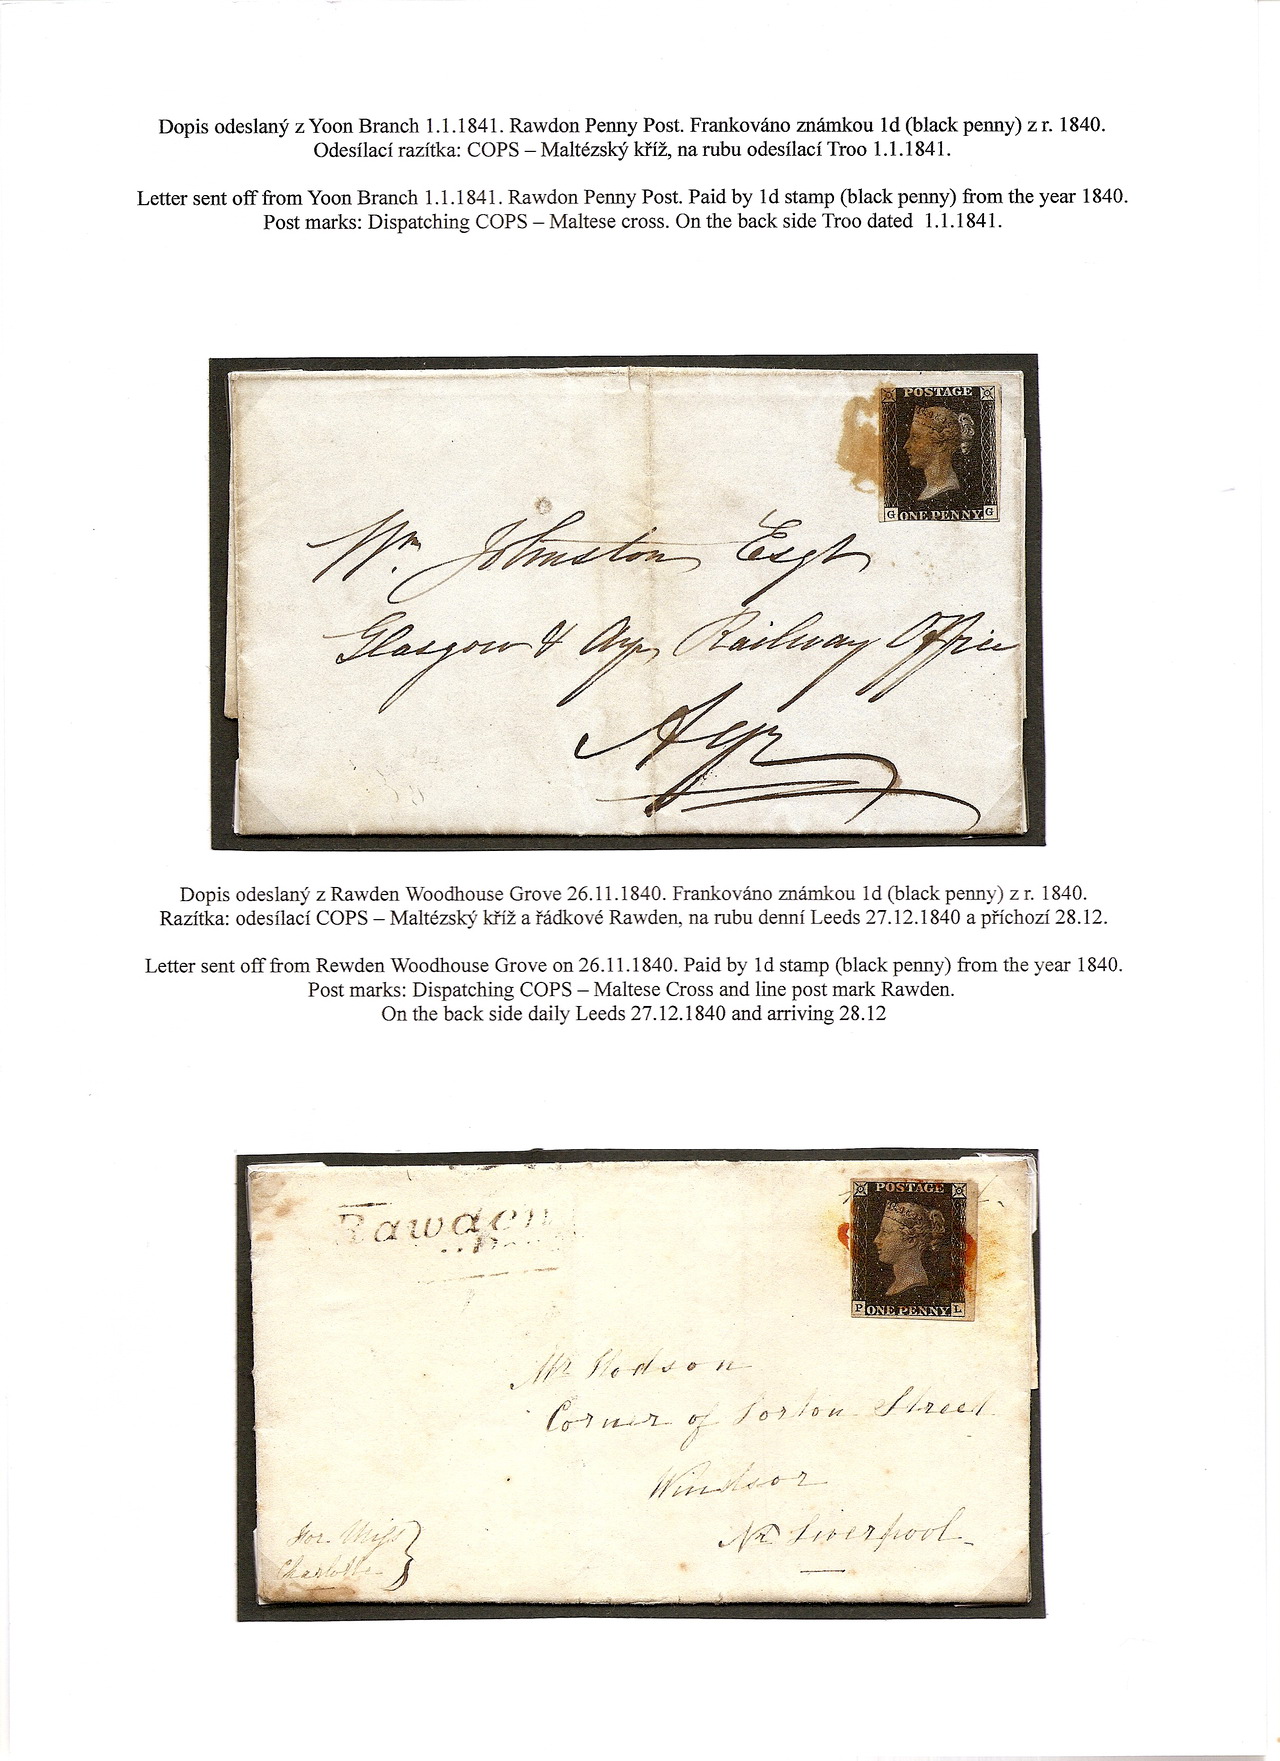 Dopis odeslaný z Yoon Branch 1.1.1841. Rawdon Penny Post. Frankováno známkou 1d (black penny) z r. 1840.
Odesílací razítka: COPS – Maltézský kříž, na rubu odesílací Troo 1.1.1841.
Letter sent off from Yoon Branch 1.1.1841. Rawdon Penny Post. Paid by 1d stamp (black penny) from the year 1840.
Post marks: Dispatching COPS – Maltese cross. On the back side Troo dated 1.1.1841.
POSTAGE
G ONE PENNY. G
Wm. Johnston Esqr
Glasgow & Ayr Railway Office
Ayr
Dopis odeslaný z Rawden Woodhouse Grove 26.11.1840. Frankováno známkou 1d (black penny) z r. 1840.
Razítka: odesílací COPS – Maltézský kříž a řádkové Rawden, na rubu denní Leeds 27.12.1840 a příchozí 28.12.
Letter sent off from Rewden Woodhouse Grove on 26.11.1840. Paid by 1d stamp (black penny) from the year 1840.
Post marks: Dispatching COPS – Maltese Cross and line post mark Rawden.
On the back side daily Leeds 27.12.1840 and arriving 28.12
POSTAGE
P ONE PENNY L
Rawden
Mr Hodson
Corner of Street
Windsor
Nr Liverpool
For Miss
Charlotte